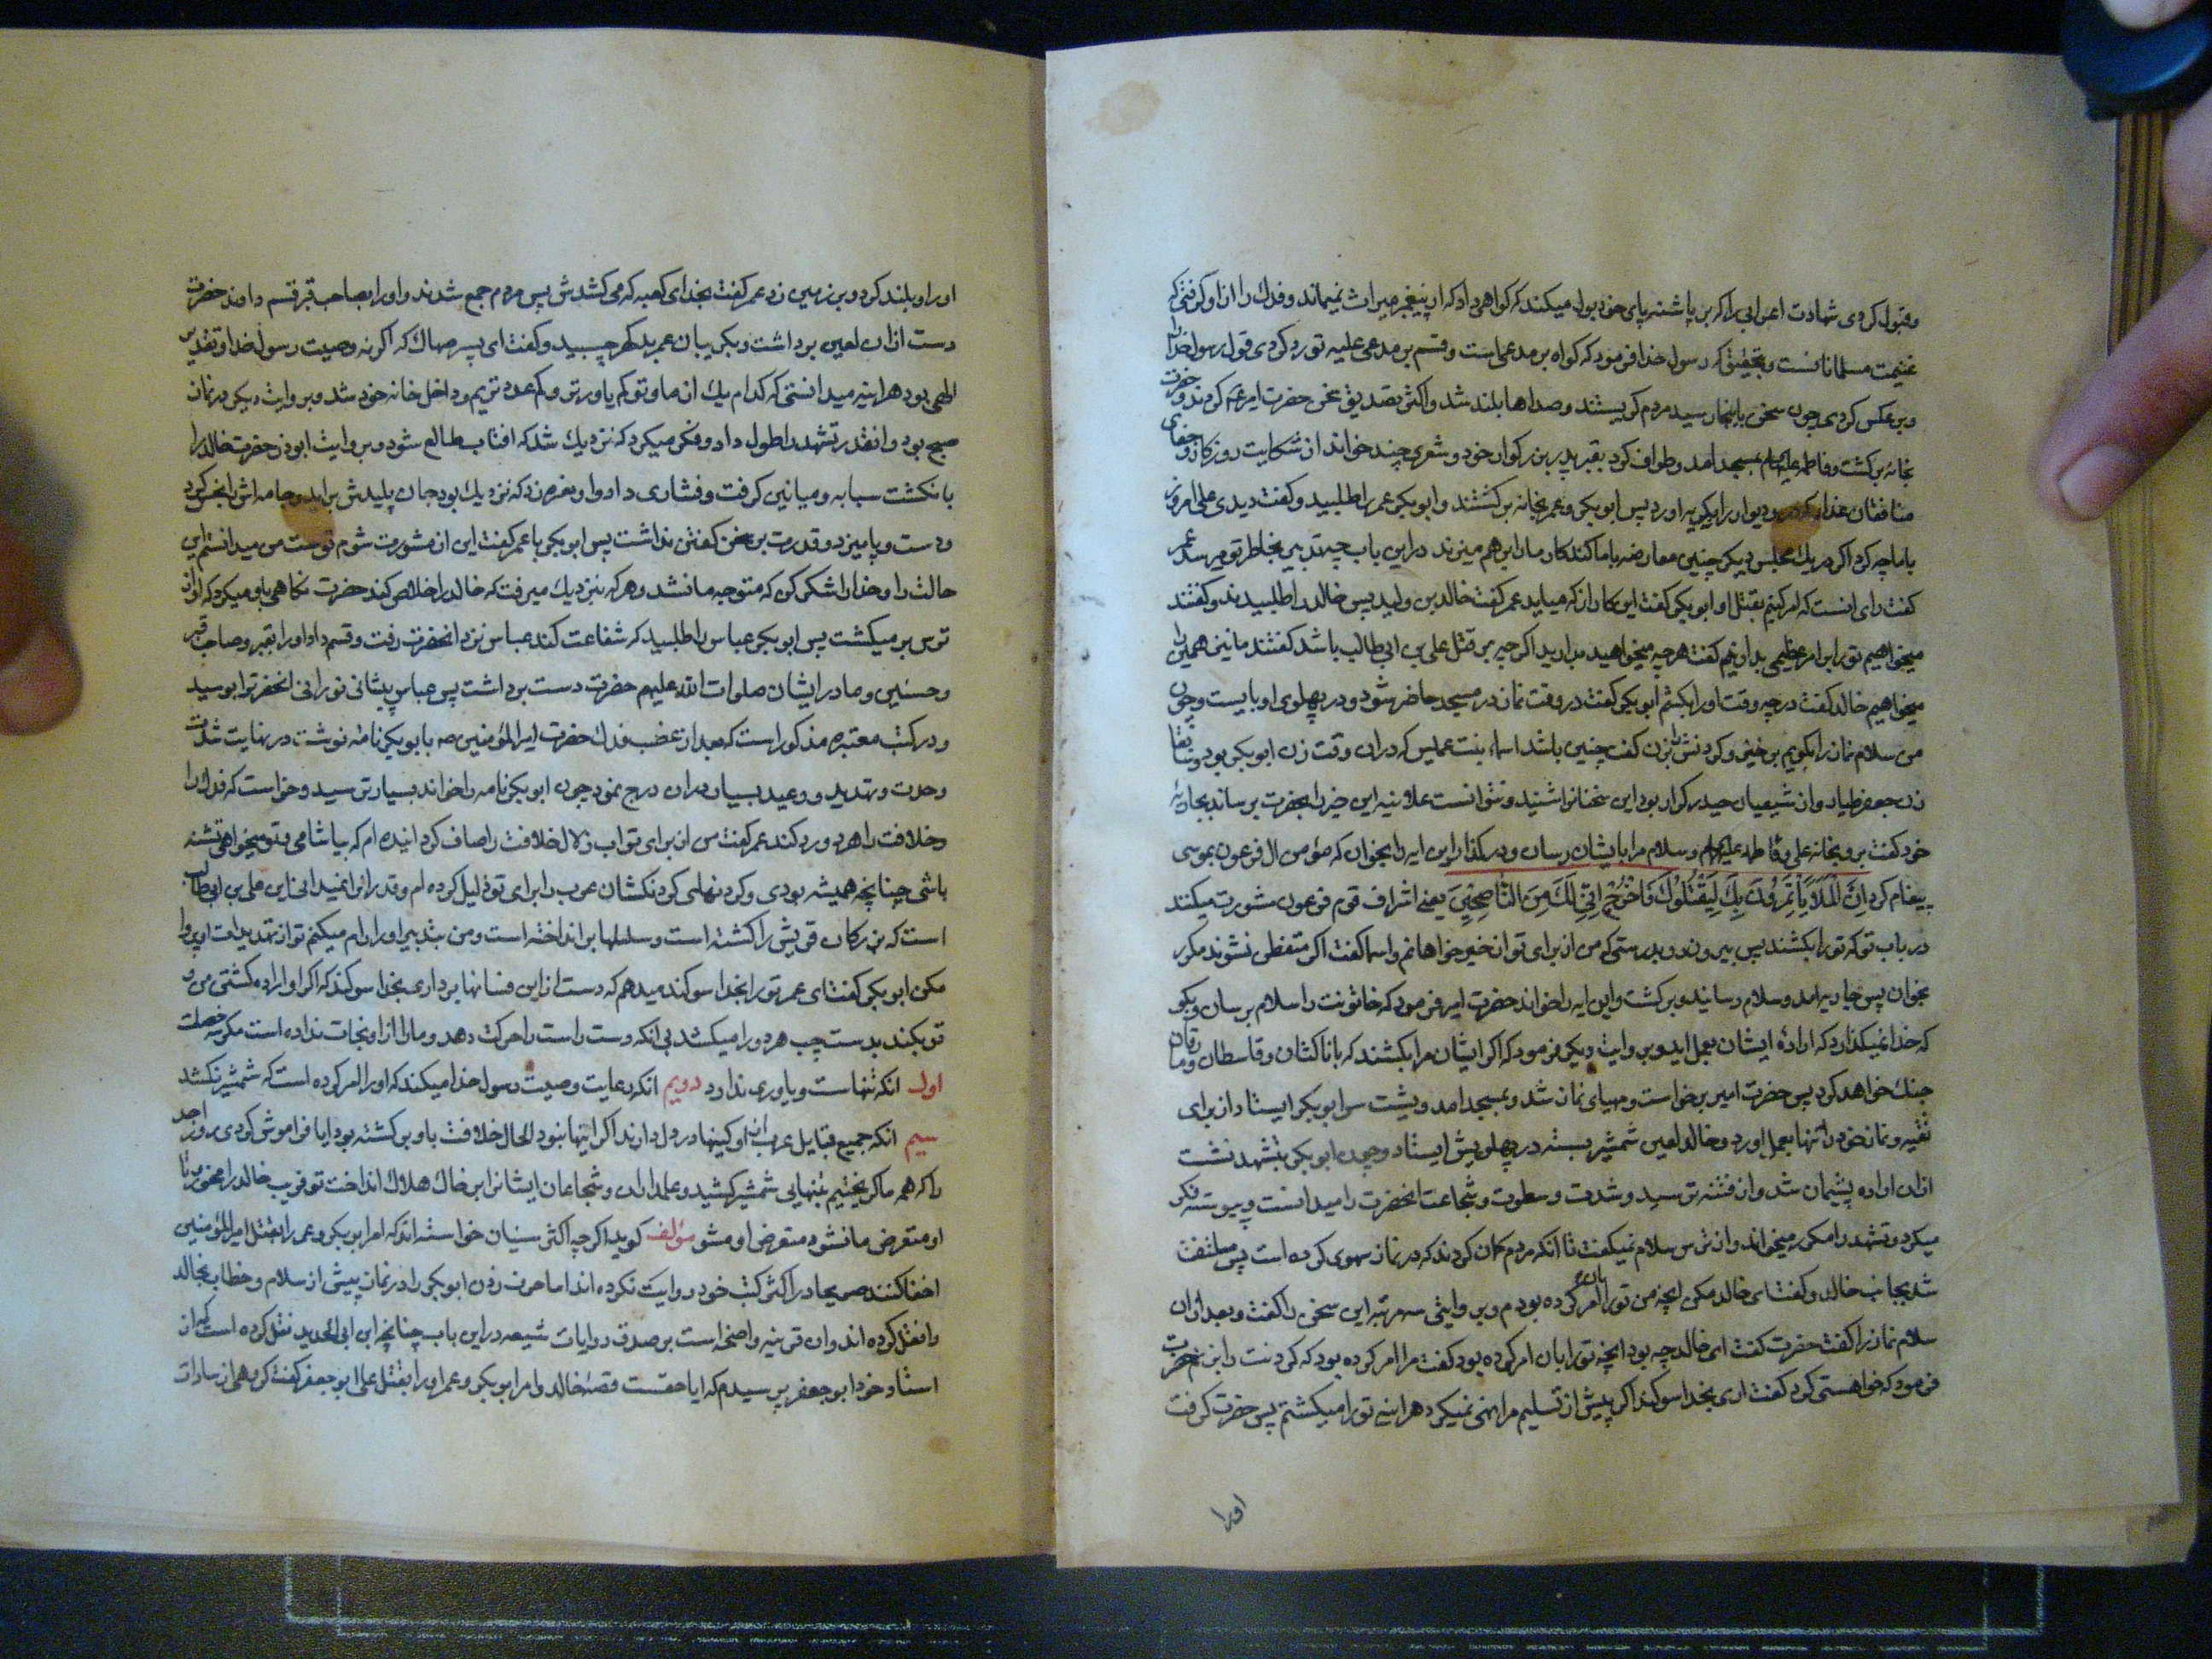 وقبول کردی شهادت اعرابی را که بر پاشنه پای خود بول میکند که کواهی داد که از پیغمبر میراث نمیماند و فدک را از او کرفتی که
غنیمت مسلمانانست و بتحقیق که رسول خدا فرمود که کواه بر مدعیاست و قسم بر مدعی علیه تو رد کردی قول رسول خدا را
و بر عکس کردی چون سخن باینجا رسید مردم کریستند و صداها بلند شد و اکثر تصدیق سخن حضرت امیر کردند و حضرت
بخانه برکشت و فاطمه علیها السلام بمسجد امد و طواف کرد بقبر پدر بزرکوار خود و شعری چند خواند از شکایت روزکار و جفای
منافقان غدار که در و دیوار را بکریه اورد پس ابوبکر و عمر بخانه برکشتند و ابوبکر عمر را طلبید و کفت دیدی علی امروز
با ما چه کرد اکر در یک مجلس دیکر چنین معارضه با ما کند کار ما را برهم میزند در این باب چه تدبیر بخاطر تو میرسد عمر
کفت رای انست که امر کنیم بقتل او ابوبکر کفت این کار از که میاید عمر کفت خالد بن ولید پس خالد را طلبیدند و کفتند
میخواهیم تو را بر امر عظیمی بداریم کفت هر چه میخواهید بدارید اکر چه بر قتل علی بن ابی طالب باشد کفتند ما نیز همین را
میخواهیم خالد کفت در چه وقت او را بکشم ابوبکر کفت در وقت نماز در مسجد حاضر شو و در پهلوی او بایست و چون
من سلام نماز را بکویم برخیز و کردنش را بزن کفت چنین باشد اسماء بنت عمیس که در ان وقت زن ابوبکر بود و سابقا
زن جعفر طیار و از شیعیان حیدر کرار بود این سخنانرا شنید و نتوانست علانیه این خبر را بحضرت برساند بجاریه
خود کفت برو بخانه علی و فاطمه علیهما السلام و سلام مرا بایشان رسان و در کذار این ایه را بخوان که مؤمن ال فرعون بموسی
پیغام کرد اِنَّ الْمَلَأَ یَأْتَمِرُونَ بِكَ لِیَقْتُلُوكَ فَاخْرُجْ اِنّی لَكَ مِنَ النَّاصِحِینَ یعنی اشراف قوم فرعون مشورت میکنند
در باب تو که تو را بکشند پس بیرون رو بدرستی که من از برای تو از خیر خواهانم و اسما کفت اکر متفطن نشوند مکرر
بخوان پس جاریه امد و سلام رسانید و برکشت و این ایه را خواند حضرت امیر فرمود که خاتونت را سلام برسان و بکو
که خدا نمیکذارد که ارادهٔ ایشان بعمل اید و بروایت دیکر فرمود که اکر ایشان مرا بکشند که با ناکثان و قاسطان و مارقان
جنک خواهد کرد پس حضرت امیر برخواست و مهیای نماز شد و بمسجد امد و پشت سر ابوبکر ایستاد از برای
تقیه و نماز خود را تنها بعمل اورد و خالد لعین شمشیر بسته در پهلویش ایستاد و چون ابوبکر بتشهد نشست
ازان اراده پشیمان شد و از فتنه ترسید و شدت و سطوت و شجاعت انحضرت را میدانست و پیوسته فکر
میکرد و تشهد را مکرر میخواند و از ترس سلام نمیکفت تا انکه مردم کمان کردند که در نماز سهوی کرده است پس ملتفت
شد بجانب خالد و کفت ای خالد مکن انچه من تو را بان امر کرده بودم و بروایتی سه مرتبه این سخن را کفت و بعد ازان
سلام نماز را کفت حضرت کفت ای خالد چه بود انچه تو را بان امر کرده بود کفت مرا امر کرده بود که کردنت را بزنم حضرت
فرمود که خواهستی کرد کفت اری بخدا سوکند اکر پیش از تسلیم مرا نهی نمیکرد هراینه تو را میکشتم پس حضرت کرفت
اورا
اورا و بلند کرد و بر زمین زد عمر کفت بخدای کعبه که می کشدش پس مردم جمع شدند و اورا بصاحب قبر قسم دادند حضرت
دست ازان لعین برداشت و بکریبان عمر چسبید و کفت ای پسر صهاک که اکر نه وصیت رسول خدا و تقدیر
الهی بود هراینه میدانستی که کدام یک از ما و تو کم یاورتر و کم عددتریم و داخل خانه خود شد و بروایت دیکر در نماز
صبح بود و انقدر تشهد را طول داد و فکر میکرد که نزدیک شد که افتاب طالع شود و بروایت ابوذر حضرت خالد را
بانکشت سبابه و میانین کرفت و فشاری داد و او نعره زد که نزدیک بود جان پلیدش براید و جامه اش را نجس کرد
و دست و پا میزد و قدرت بر سخن کفتن نداشت پس ابوبکر با عمر کفت این از مشورت شوم توست من میدانستم این
حالت را و خدا را شکر کن که متوجه ما نشد و هر که بنزدیک میرفت که خالد را خلاص کند حضرت نکاهی باو میکرد که او از
ترس برمیکشت پس ابوبکر عباس را طلبید که شفاعت کند عباس نزد انحضرت رفت و قسم داد او را بقبر و صاحب قبر
و حسنین و مادر ایشان صلوات الله علیهم حضرت دست برداشت پس عباس پیشانی نورانی انحضرت را بوسید
و در کتب معتبره مذکور است که بعد از غضب فدک حضرت امیرالمؤمنین ص بابوبکر نامه نوشت در نهایت شدت
و حدت و تهدید و وعید بسیار دران درج نمود چون ابوبکر نامه را خواند بسیار ترسید و خواست که فدک را
و خلافت را هر دو رد کند عمر کفت من از برای تو اب زلال خلافت را صاف کردانیده ام که بیاشامی و تو میخواهی تشنه
باشی چنانچه همیشه بودی و کردنهای کردنکشان عرب را برای تو ذلیل کرده ام و قدر انرا نمیدانی این علی بن ابی طالب
است که بزرکان قریش را کشته است و سلسلها برانداخته است و من بتدبیر او را رام میکنم تو از تهدیدات او پروا
مکن ابوبکر کفت ای عمر تو را بخدا سوکند میدهم که دست ازاین فسانها برداری بخدا سوکند که اکر او اراده کشتن من و
تو بکند بدست چپ هر دو را میکشد بی انکه دست راست را حرکت دهد و ما را از او نجات نداده است مکر سه خصلت
اول انکه تنهاست و یاوری ندارد دویم انکه رعایت وصیت رسول خدا میکند که او را امر کرده است که شمشیر نکشد
سیم انکه جمیع قبایل عرب از او کینها در دل دارند اکر اینها نبود الحال خلافت باو برکشته بود ایا فراموش کردی روز احد
را که همه ما کریختیم بتنهایی شمشیر کشید و علمداران و شجاعان ایشانرا بر خاک هلاک انداخت تو فریب خالد را مخور و تا
او متعرض ما نشود متعرض او مشو مؤلف کوید اکرچه اکثر سنیان خواسته اند که امر ابوبکر و عمر را بقتل امیرالمؤمنین
اخفا کنند صریحا در اکثر کتب خود روایت نکرده اند اما حرف زدن ابوبکر را در نماز پیش از سلام و خطاب بخالد
را نقل کرده اند و ان قرینه واضحه است بر صدق روایات شیعه در این باب چنانچه ابن ابی الحدید نقل کرده است که از
استاد خود ابوجعفر پرسیدم که ایا حقست قصهٔ خالد و امر ابوبکر و عمر او را بقتل علی ابوجعفر کفت کروهی از سادات